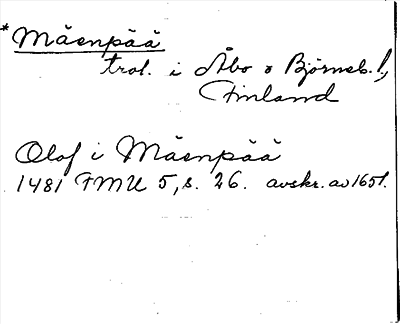 *Mäenpää
trol. i Åbo o Björneb. l.,
Finland
Olof i Mäenpää
1481 FMU 5, s. 26. avskr. av 1651.